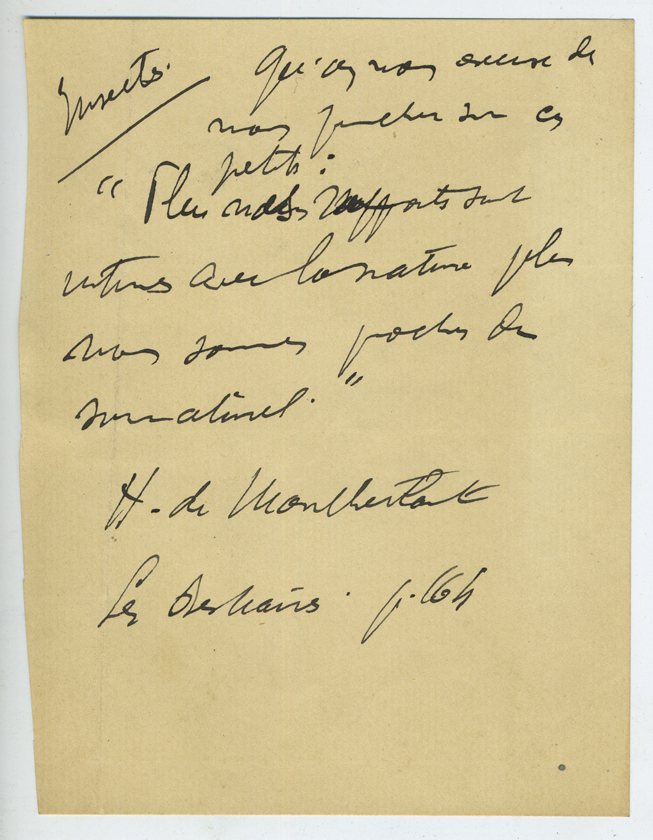 Insectes.
Qu'on nous excuse de
nous pencher sur ces
petits :
" Plus nos rapports sont
intimes avec la nature plus
nous sommes proches du
surnaturel. "
H. de Montherlant
Les Bestiaires. p. 164